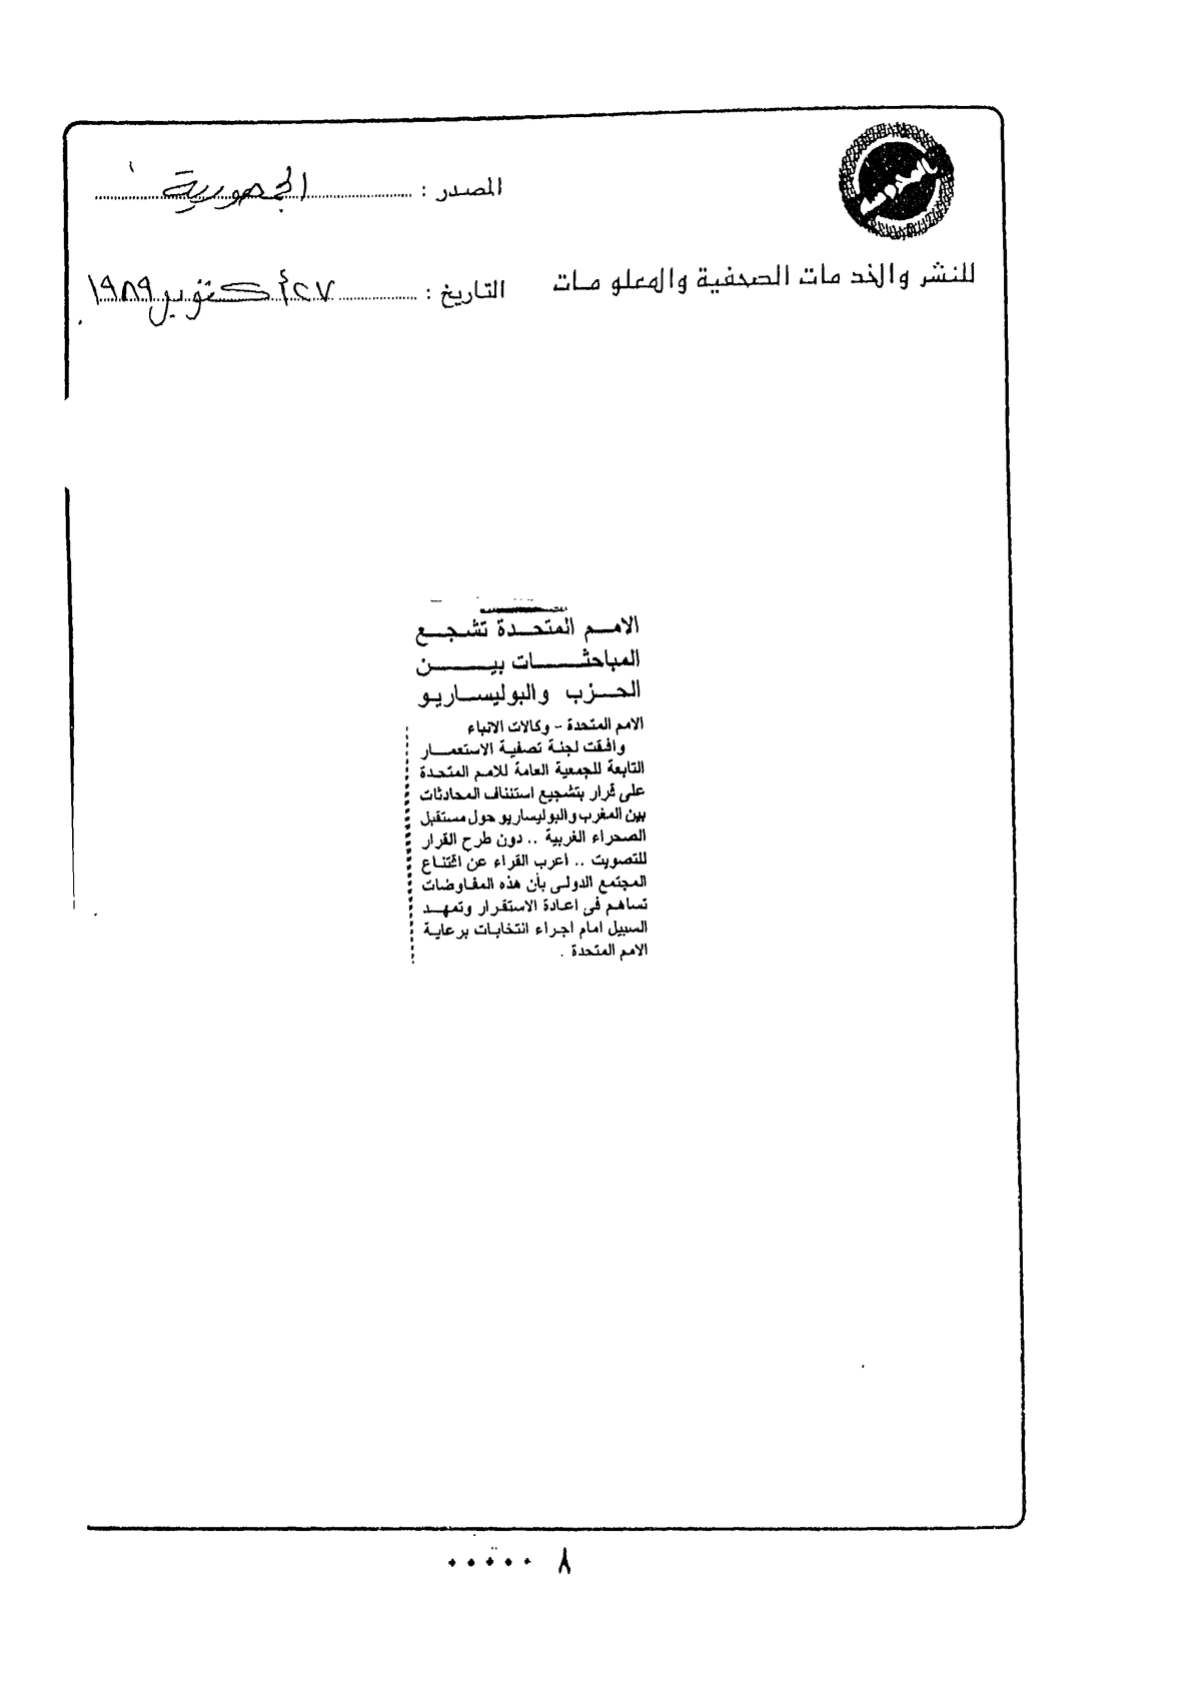 المصدر : الجمهورية
للنشر والخدمات الصحفية والمعلومات
التاريخ : ٢٧ أكتوبر ١٩٨٩
الامم المتحدة تشجع
المباحثات بين
الحزب والبوليساريو
الامم المتحدة - وكالات الانباء
وافقت لجنة تصفية الاستعمار
التابعة للجمعية العامة للامم المتحدة
على قرار بتشجيع استئناف المحادثات
بين المغرب والبوليساريو حول مستقبل
الصحراء الغربية .. دون طرح القرار
للتصويت .. اعرب القراء عن اقتناع
المجتمع الدولى بأن هذه المفاوضات
تساهم فى اعادة الاستقرار وتمهد
السبيل امام اجراء انتخابات برعاية
الامم المتحدة .
٨ ٠٠٠٠٠